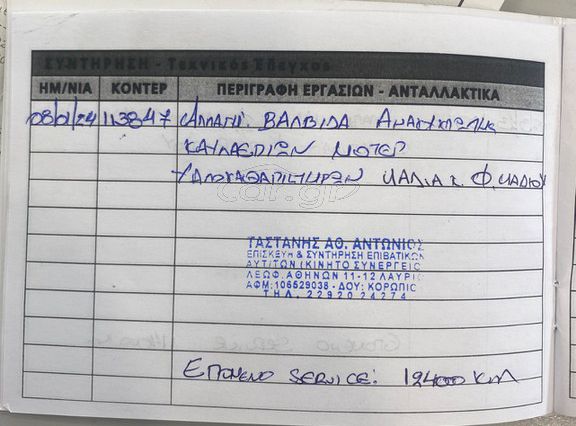 ΣΥΝΤΗΡΗΣΗ - Τεχνικός Έλεγχος
ΗΜ/ΝΙΑ ΚΟΝΤΕΡ ΠΕΡΙΓΡΑΦΗ ΕΡΓΑΣΙΩΝ - ΑΝΤΑΛΛΑΚΤΙΚΑ
08/01/24 113847 ΑΛΛΑΓΗ ΒΑΛΒΙΔΑ
ΜΟΤΕΡ
ΥΑΛΟΚΑΘΑΡΙΣΤΗΡΩΝ ΛΑΔΙΑ Κ Φ. ΛΑΔΙΟΥ
car.gr
ΤΑΣΤΑΝΗΣ ΑΘ. ΑΝΤΩΝΙΟΣ
ΕΠΙΣΚΕΥΗ & ΣΥΝΤΗΡΗΣΗ ΕΠΙΒΑΤΙΚΩΝ
ΑΥΤ/ΤΩΝ (ΚΙΝΗΤΟ ΣΥΝΕΡΓΕΙΟ
ΛΕΩΦ. ΑΘΗΝΩΝ 11-12 ΛΑΥΡΙΟ
ΑΦΜ: 106529038 - ΔΟΥ: ΚΟΡΩΠΙΟ
ΤΗΛ. 22920 24274
ΕΠΟΜΕΝΟ SERVICE: 12400 KM